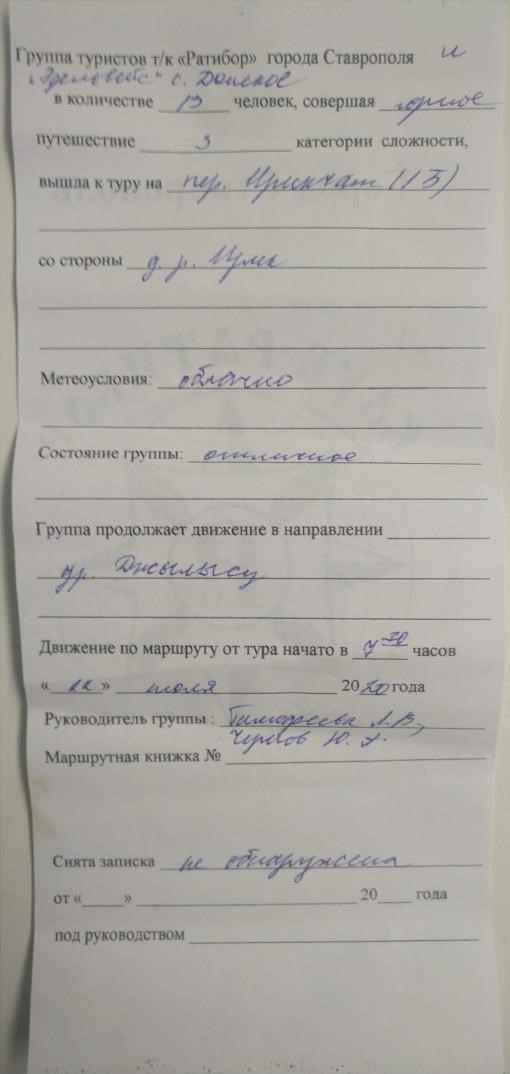 Группа туристов т/к «Ратибор» города Ставрополя и
"Эдельвейс" с. Донское
в количестве 13 человек, совершая горное
путешествие 3 категории сложности,
вышла к туру на пер. Ирикчат (1Б)
со стороны д. р. Ирик
Метеоусловия: облачно
Состояние группы: отличное
Группа продолжает движение в направлении
ур. Джылысу
Движение по маршруту от тура начато в 7 30 часов
«22» июля 2020 года
Руководитель группы : Тимофеева Л.В,
Ю. А.
Маршрутная книжка №
Снята записка не обнаружена
от « » 20 года
под руководством